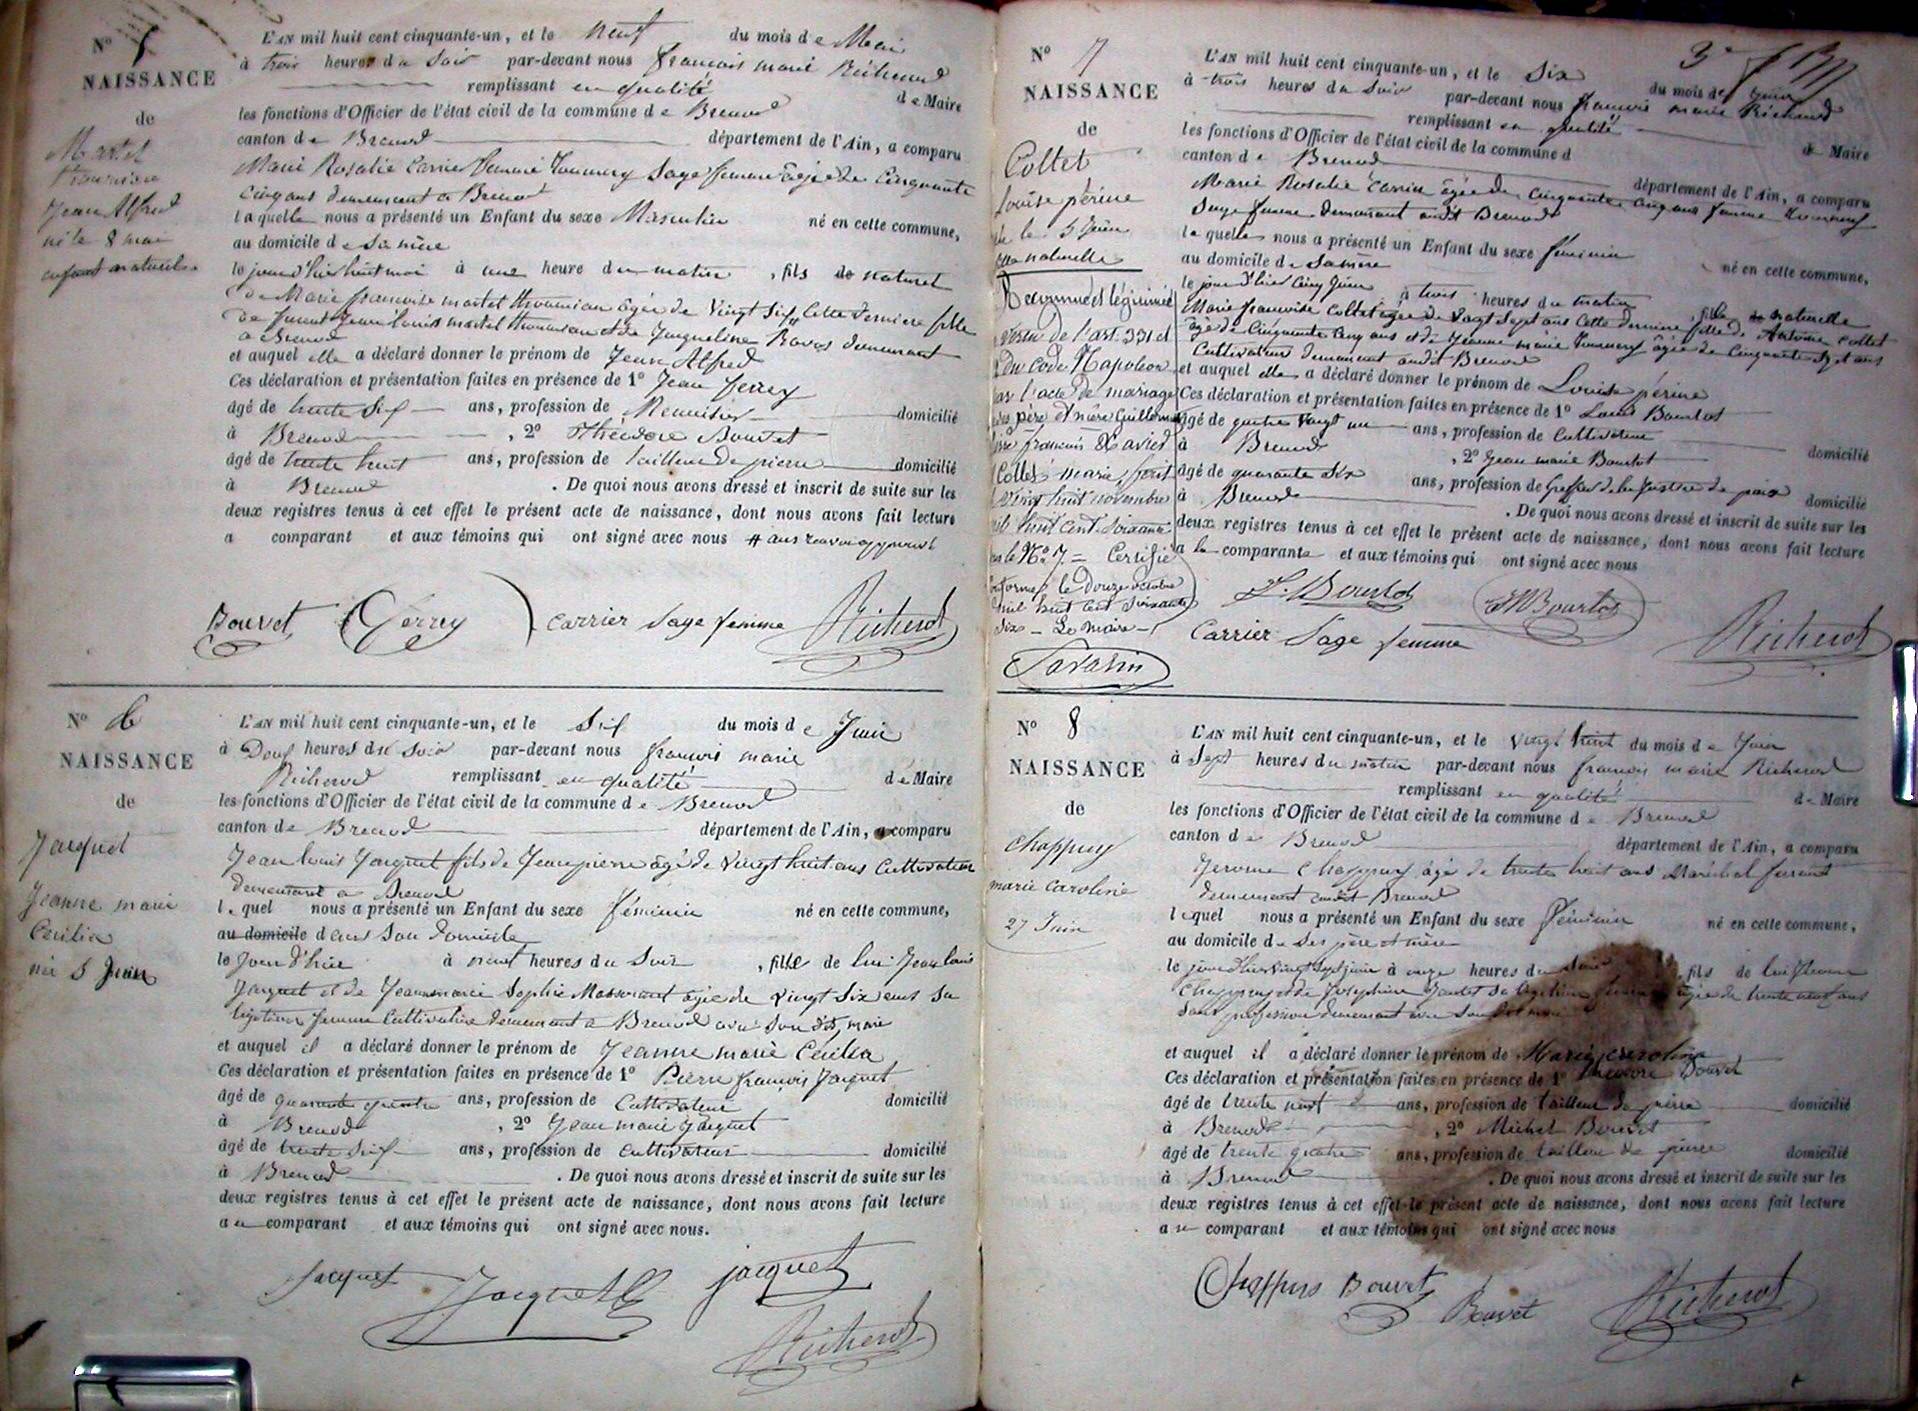 N° 5
NAISSANCE
de
Martel
Jean Alfred
né le 8 mai
enfant naturel
L'AN mil huit cent cinquante-un, et le neuf du mois de Mai
à trois heures du soir par-devant nous françois marie Richerod
remplissant en qualité de Maire
les fonctions d'Officier de l'état civil de la commune de Brenod
canton de Brenod département de l'Ain, a comparu
Marie Rosalie Carrier femme Tournery Sage femme agée de Cinquante
Cinq ans demeurant a Brenod
laquelle nous a présenté un Enfant du sexe Masculin né en cette commune,
au domicile de sa mère
le jour d'hier huit mai à une heure du matin, fils de naturel
de Marie françoise martel agée de Vingt Six Cette derniere fille
de Jean louis martel et de Jacqueline Ravos demeurant
a Brenod
et auquel elle a déclaré donner le prénom de Jean Alfred
Ces déclaration et présentation faites en présence de 1° Jean Ferrey
âgé de trente Six ans, profession de Menuisier domicilié
à Brenod, 2° Théodore Bouvet
âgé de trente huit ans, profession de tailleur de pierre domicilié
à Brenod. De quoi nous avons dressé et inscrit de suite sur les
deux registres tenus à cet effet le présent acte de naissance, dont nous avons fait lecture
a comparant et aux témoins qui ont signé avec nous # ans renvoi approuvé
Bouvet Ferrey Carrier Sage femme Richerod
N° 6
NAISSANCE
de
Jacquet
Jeanne marie
Cecilia
né 5 Juin
L'AN mil huit cent cinquante-un, et le Six du mois de Juin
à Deux heures du soir par-devant nous françois marie
Richerod remplissant en qualité de Maire
les fonctions d'Officier de l'état civil de la commune de Brenod
canton de Brenod département de l'Ain, a comparu
Jean louis Jacquet fils de Jean pierre agé de Vingt huit ans Cultivateur
demeurant a Brenod
lequel nous a présenté un Enfant du sexe féminin né en cette commune,
au domicile dans Son domicile
le Jour d'hier à neuf heures du Soir, fille de lui Jean louis
Jacquet et de Jeanne marie Sophie agée de vingt Six ans sa
légitime femme Cultivatrice demeurant a Brenod avec Son dit mari
et auquel il a déclaré donner le prénom de Jeanne marie Cecilia
Ces déclaration et présentation faites en présence de 1° Pierre françois Jacquet
âgé de quarante quatre ans, profession de Cultivateur domicilié
à Brenod, 2° Jean marie Jacquet
âgé de trente Six ans, profession de cultivateur domicilié
à Brenod. De quoi nous avons dressé et inscrit de suite sur les
deux registres tenus à cet effet le présent acte de naissance, dont nous avons fait lecture
au comparant et aux témoins qui ont signé avec nous.
Jacquet Jacquet jacquet
Richerod
3e f
N° 7
NAISSANCE
de
Collet
Louise périne
née le 5 Juin
naturelle
Reconnue et légitimée
de l'art. 331
du code Napoléon
par l'acte de mariage
père et mère Guillermet
françois Xavier
Collet marie fent
vingt huit novembre
mil huit cent soixante
N° 7 = Certifié
conforme, le douze octobre
mil huit cent soixante
dix - Le maire -
Savarin
L'AN mil huit cent cinquante-un, et le Six du mois de Juin
à trois heures du Soir par-devant nous françois marie Richerod
remplissant en qualité de Maire
les fonctions d'Officier de l'état civil de la commune d
canton de Brenod département de l'Ain, a comparu
Marie Rosalie Carrier âgée de Cinquante Cinq ans femme Tournery
Sage femme demeurant audit Brenod
laquelle nous a présenté un Enfant du sexe féminin né en cette commune,
au domicile de Sa mère
le jour d'hier Cinq Juin à trois heures du matin, fille naturelle
Marie françoise Collet agée de Vingt Sept ans Cette dernière fille de Antoine Collet
agé de Cinquante Cinq ans et de Jeanne marie Tournery âgée de Cinquante Sept ans
Cultivateurs demeurant audit Brenod
et auquel elle a déclaré donner le prénom de Louise périne
Ces déclaration et présentation faites en présence de 1° Louis Bourlot
âgé de quatre Vingt un ans, profession de Cultivateur domicilié
à Brenod, 2° Jean marie Bourlot
âgé de quarante Six ans, profession de Greffier de la Justice de paix domicilié
à Brenod. De quoi nous avons dressé et inscrit de suite sur les
deux registres tenus à cet effet le présent acte de naissance, dont nous avons fait lecture
a la comparante et aux témoins qui ont signé avec nous
L. Bourlot JM Bourlot
Carrier Sage femme Richerod
N° 8
NAISSANCE
de
Chappuy
marie caroline
27 Juin
L'AN mil huit cent cinquante-un, et le vingt huit du mois de Juin
à Sept heures du matin par-devant nous françois marie Richerod
remplissant en qualité de Maire
les fonctions d'Officier de l'état civil de la commune de Brenod
canton de Brenod département de l'Ain, a comparu
Jerome Chappuy agé de trente huit ans Maréchal ferrant
demeurant audit Brenod
lequel nous a présenté un Enfant du sexe féminin né en cette commune,
au domicile de Ses père et mère
le jour d'hier vingt Sept juin à onze heures du Soir, fils de lui Jerome
Chappuy et de Joséphine Sa légitime femme agée de trente neuf ans
Sans profession demeurant avec Son dit mari
et auquel il a déclaré donner le prénom de Marie caroline
Ces déclaration et présentation faites en présence de 1° Théodore Bouvet
âgé de trente huit ans, profession de tailleur de pierre domicilié
à Brenod, 2° Michel Bouvet
âgé de trente quatre ans, profession de tailleur de pierre domicilié
à Brenod. De quoi nous avons dressé et inscrit de suite sur les
deux registres tenus à cet effet le présent acte de naissance, dont nous avons fait lecture
au comparant et aux témoins qui ont signé avec nous
Chappuis Bouvet Bouvet Richerod